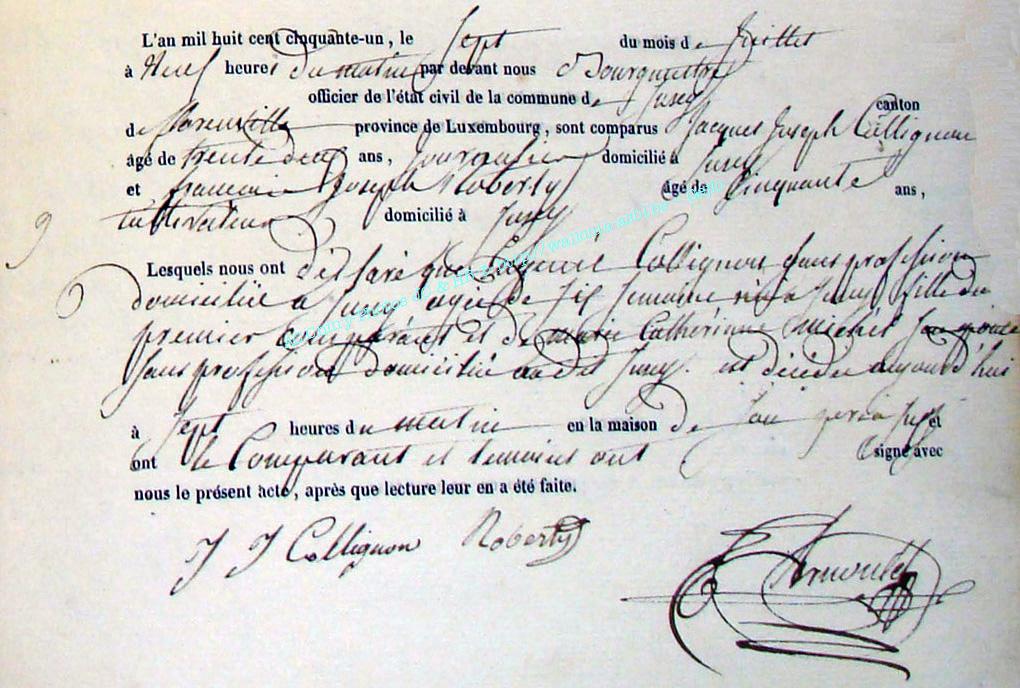 L'an mil huit cent cinquante-un, le Sept du mois de Juillet
à Neuf heures du matin par devant nous Bourgmestre
officier de l'état civil de la commune de Juseret canton
de province de Luxembourg, sont comparus Jacques Joseph Collignon
âgé de trente deux ans, Journalier domicilié à
et françois Joseph Roberty âgé de Cinquante ans,
Cultivateur domicilié à
Lesquels nous ont déclaré que Collignon sans profession
domiciliée à agée de six semaine née à fille du
premier comparant et de marie Catherinne michel son épouse
sans profession domiciliée audit est décédée aujourd'hui
à Sept heures du matin en la maison de son père à et
ont le Comparant et temoins ont signé avec
nous le présent acte, après que lecture leur en a été faite.
J J Collignon Roberty